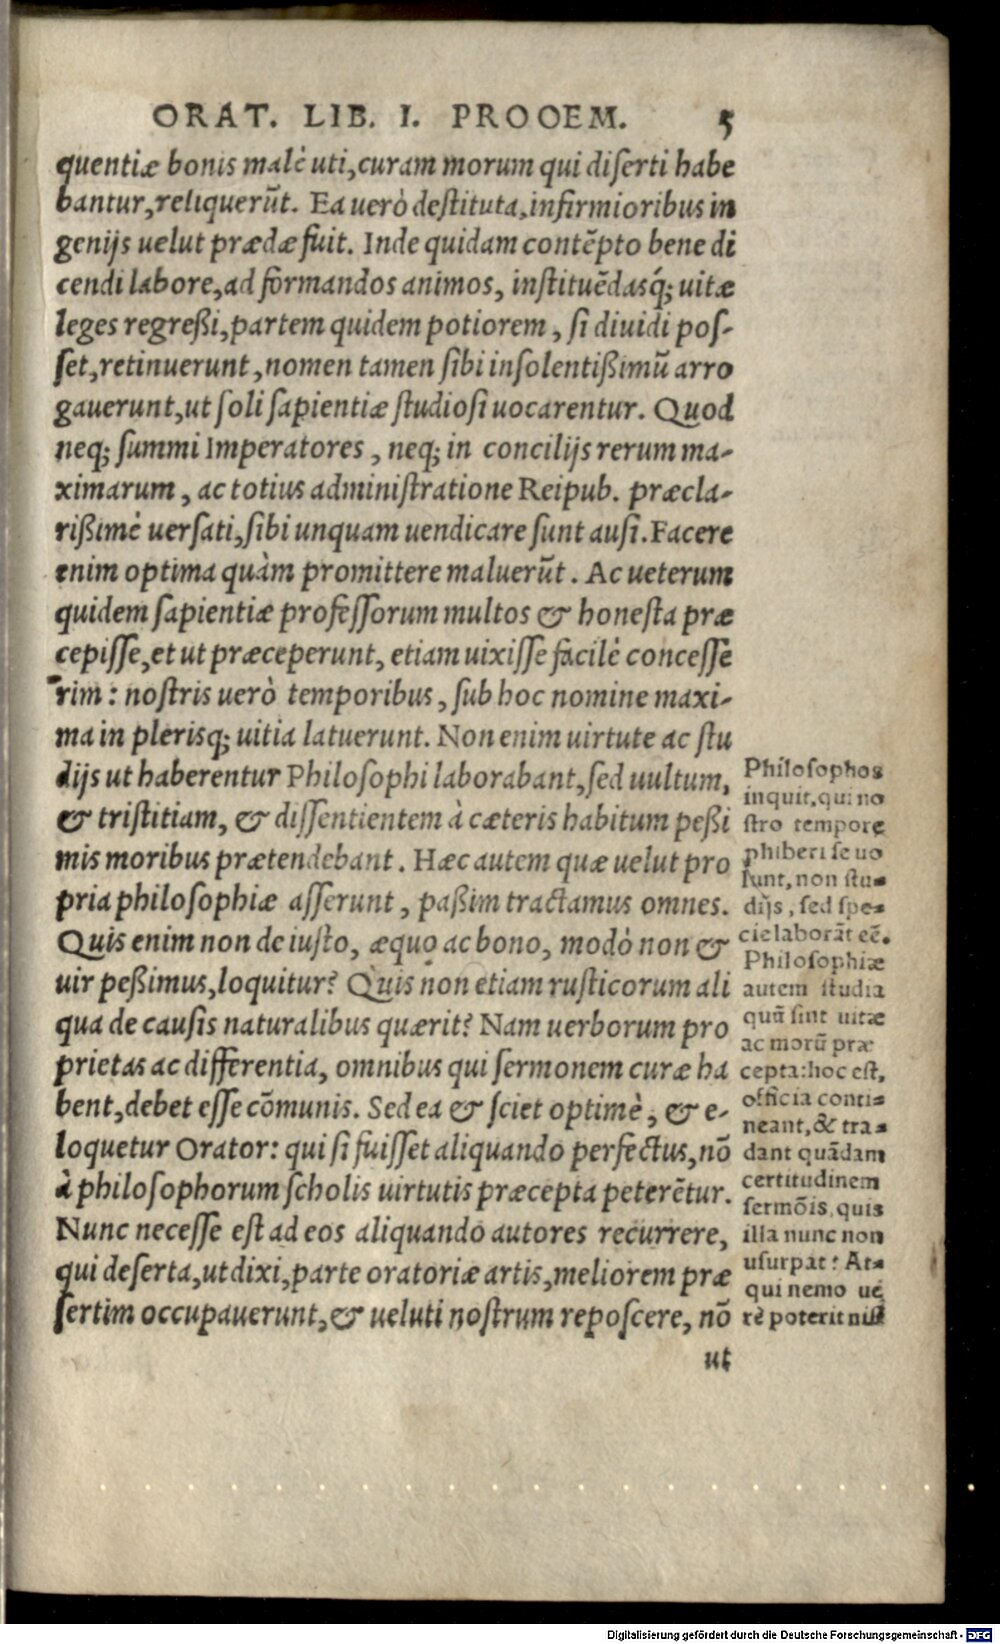 ORAT. LIB. I. PROOEM. 5
quentiæ bonis malè uti, curam morum qui diserti habe
bantur, reliquerūt. Ea uerò destituta, infirmioribus in
genijs uelut prædæ fuit. Inde quidam contēpto bene di
cendi labore, ad formandos animos, instituēdasq́; uitæ
leges regreßi, partem quidem potiorem, si diuidi pos-
set, retinuerunt, nomen tamen sibi insolentißimū arro
gauerunt, ut soli sapientiæ studiosi uocarentur. Quod
neq; summi Imperatores, neq; in concilijs rerum ma-
ximarum, ac totius administratione Reipub. præcla-
rißimè uersati, sibi unquam uendicare sunt ausi. Facere
enim optima quàm promittere maluerūt. Ac ueterum
quidem sapientiæ professorum multos & honesta præ
cepisse, et ut præceperunt, etiam uixisse facilè concesse
rim: nostris uerò temporibus, sub hoc nomine maxi-
ma in plerisq; uitia latuerunt. Non enim uirtute ac stu
dijs ut haberentur Philosophi laborabant, sed uultum,
& tristitiam, & dissentientem à cæteris habitum peßi
mis moribus prætendebant. Hæc autem quæ uelut pro
pria philosophiæ asserunt, paßim tractamus omnes.
Quis enim non de iusto, æquo ac bono, modò non &
uir peßimus, loquitur? Quis non etiam rusticorum ali
qua de causis naturalibus quærit? Nam uerborum pro
prietas ac differentia, omnibus qui sermonem curæ ha
bent, debet esse cōmunis. Sed ea & sciet optimè, & e-
loquetur Orator: qui si fuisset aliquando perfectus, nō
à philosophorum scholis uirtutis præcepta peterētur.
Nunc necesse est ad eos aliquando autores recurrere,
qui deserta, ut dixi, parte oratoriæ artis, meliorem præ
sertim occupauerunt, & ueluti nostrum reposcere, nō
ut
Philosophos
inquit, qui no
stro tempore
phiberi se uo
lunt, non stu-
dijs, sed spe-
cie laborāt eē.
Philosophiæ
autem studia
quū sint uitæ
ac morū præ
cepta: hoc est,
officia conti-
neant, & tra-
dant quādam
certitudinem
sermōis, quis
illa nunc non
usurpat? At-
qui nemo ue
rè poterit nisi
Digitalisierung gefördert durch die Deutsche Forschungsgemeinschaft - DFG